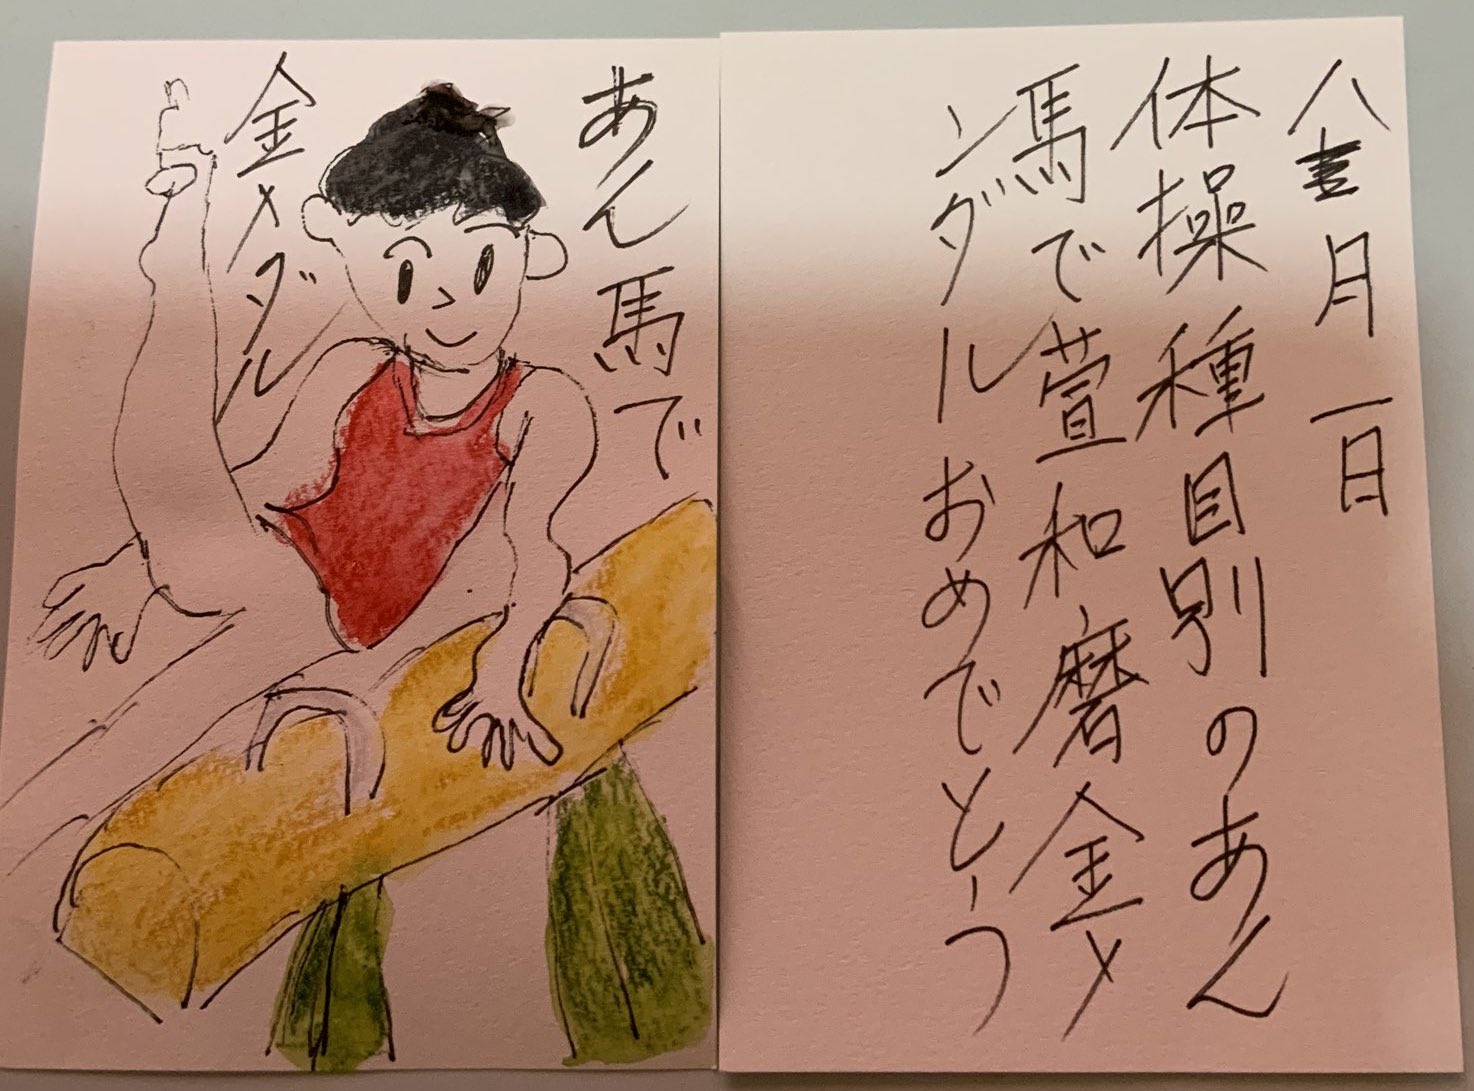 あん馬で
金メダル
八月一日
体操種目別のあん
馬で萱和磨金メ
ンダールおめでとう